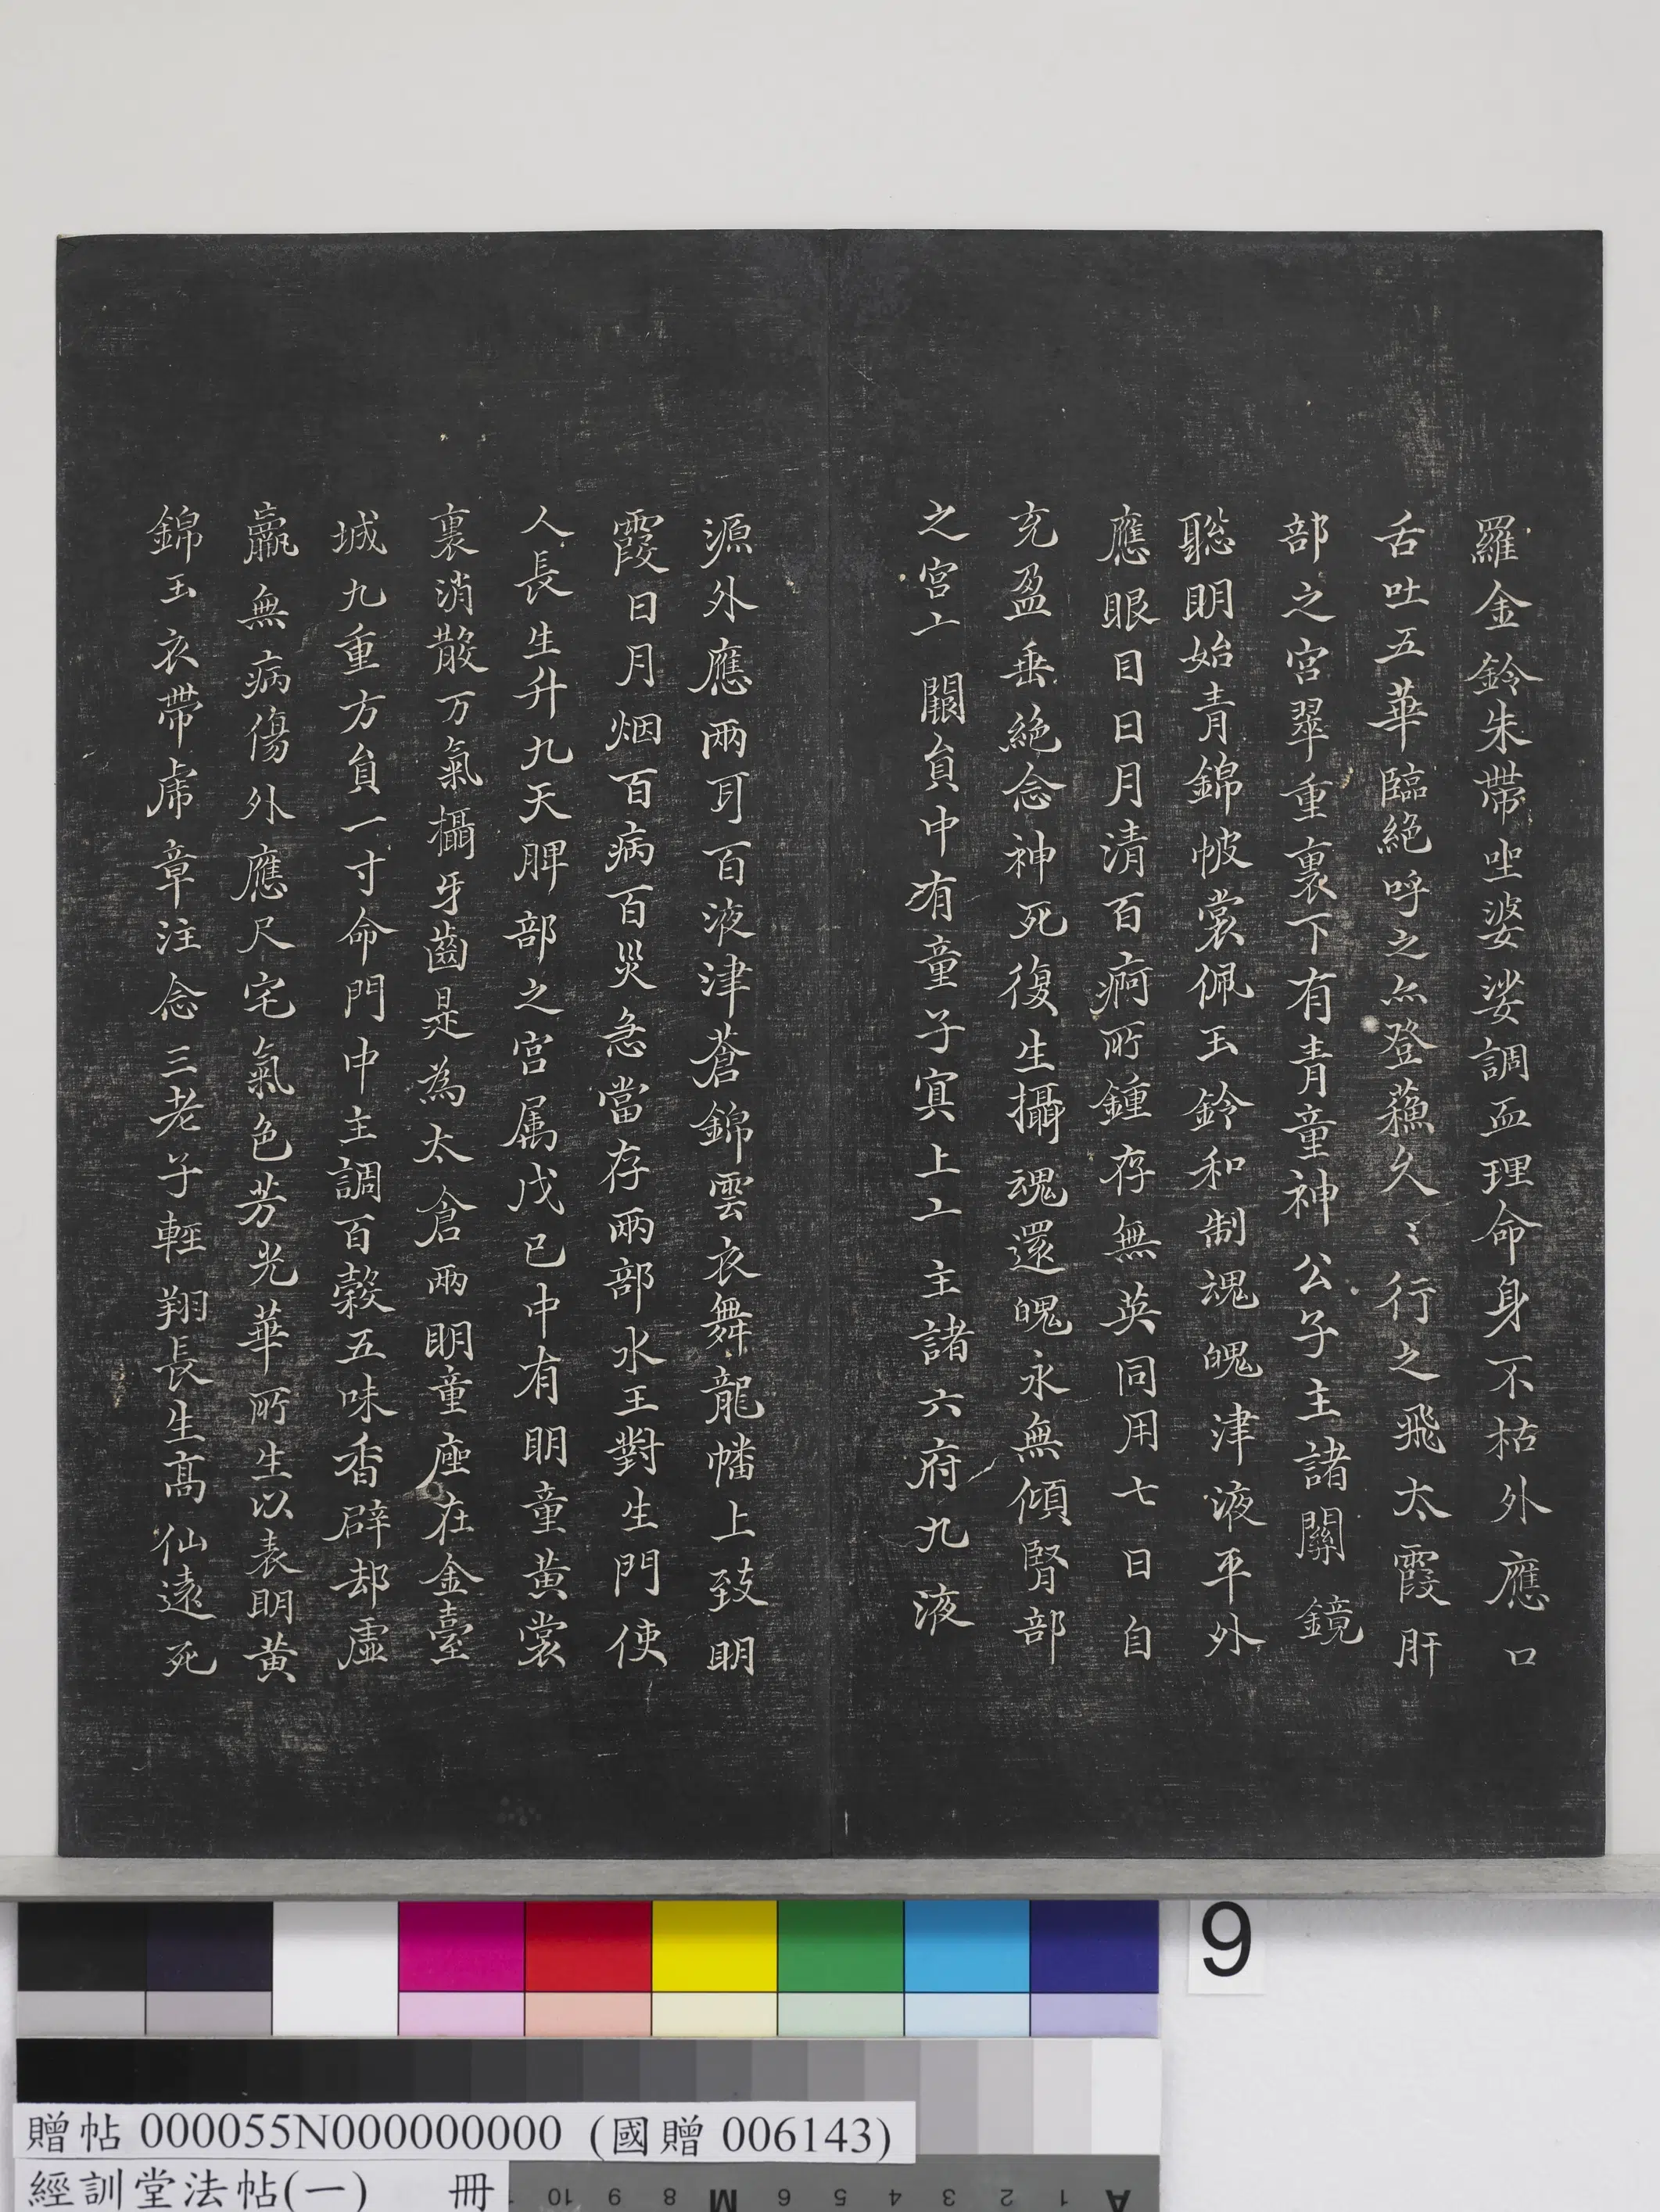 羅金鈴朱帶坐婆娑調血理命身不枯外應口
舌吐五華臨絕呼之亦登蘓久〻行之飛太霞肝
部之宮翠重裏下有青童神公子主諸關鏡
聦明始青錦帔裳佩玉鈴和制魂魄津液平外
應眼目日月清百痾所鍾存無英同用七日自
充盈垂絕念神死復生攝魂還魄永無傾腎部
之宮亠闕負中有童子㝠上亠主諸六府九液
源外應兩耳百液津蒼錦雲衣舞龍幡上致明
霞日月烟百病百災急當存兩部水王對生門使
人長生升九天脾部之宮属戊已中有明童黃裳
裏消散万氣攝牙齒是為太倉兩明童座在金臺
城九重方負一寸命門中主調百榖五味香辟却虛
羸無病傷外應尺宅氣色芳光華所生以表明黃
錦玉衣帶虎章注念三老子輕翔長生高仙遠死
9
贈帖 000055N000000000 (國贈 006143)
經訓堂法帖(一) 冊
10 9 8 M 6 5 4 3 2 1 A